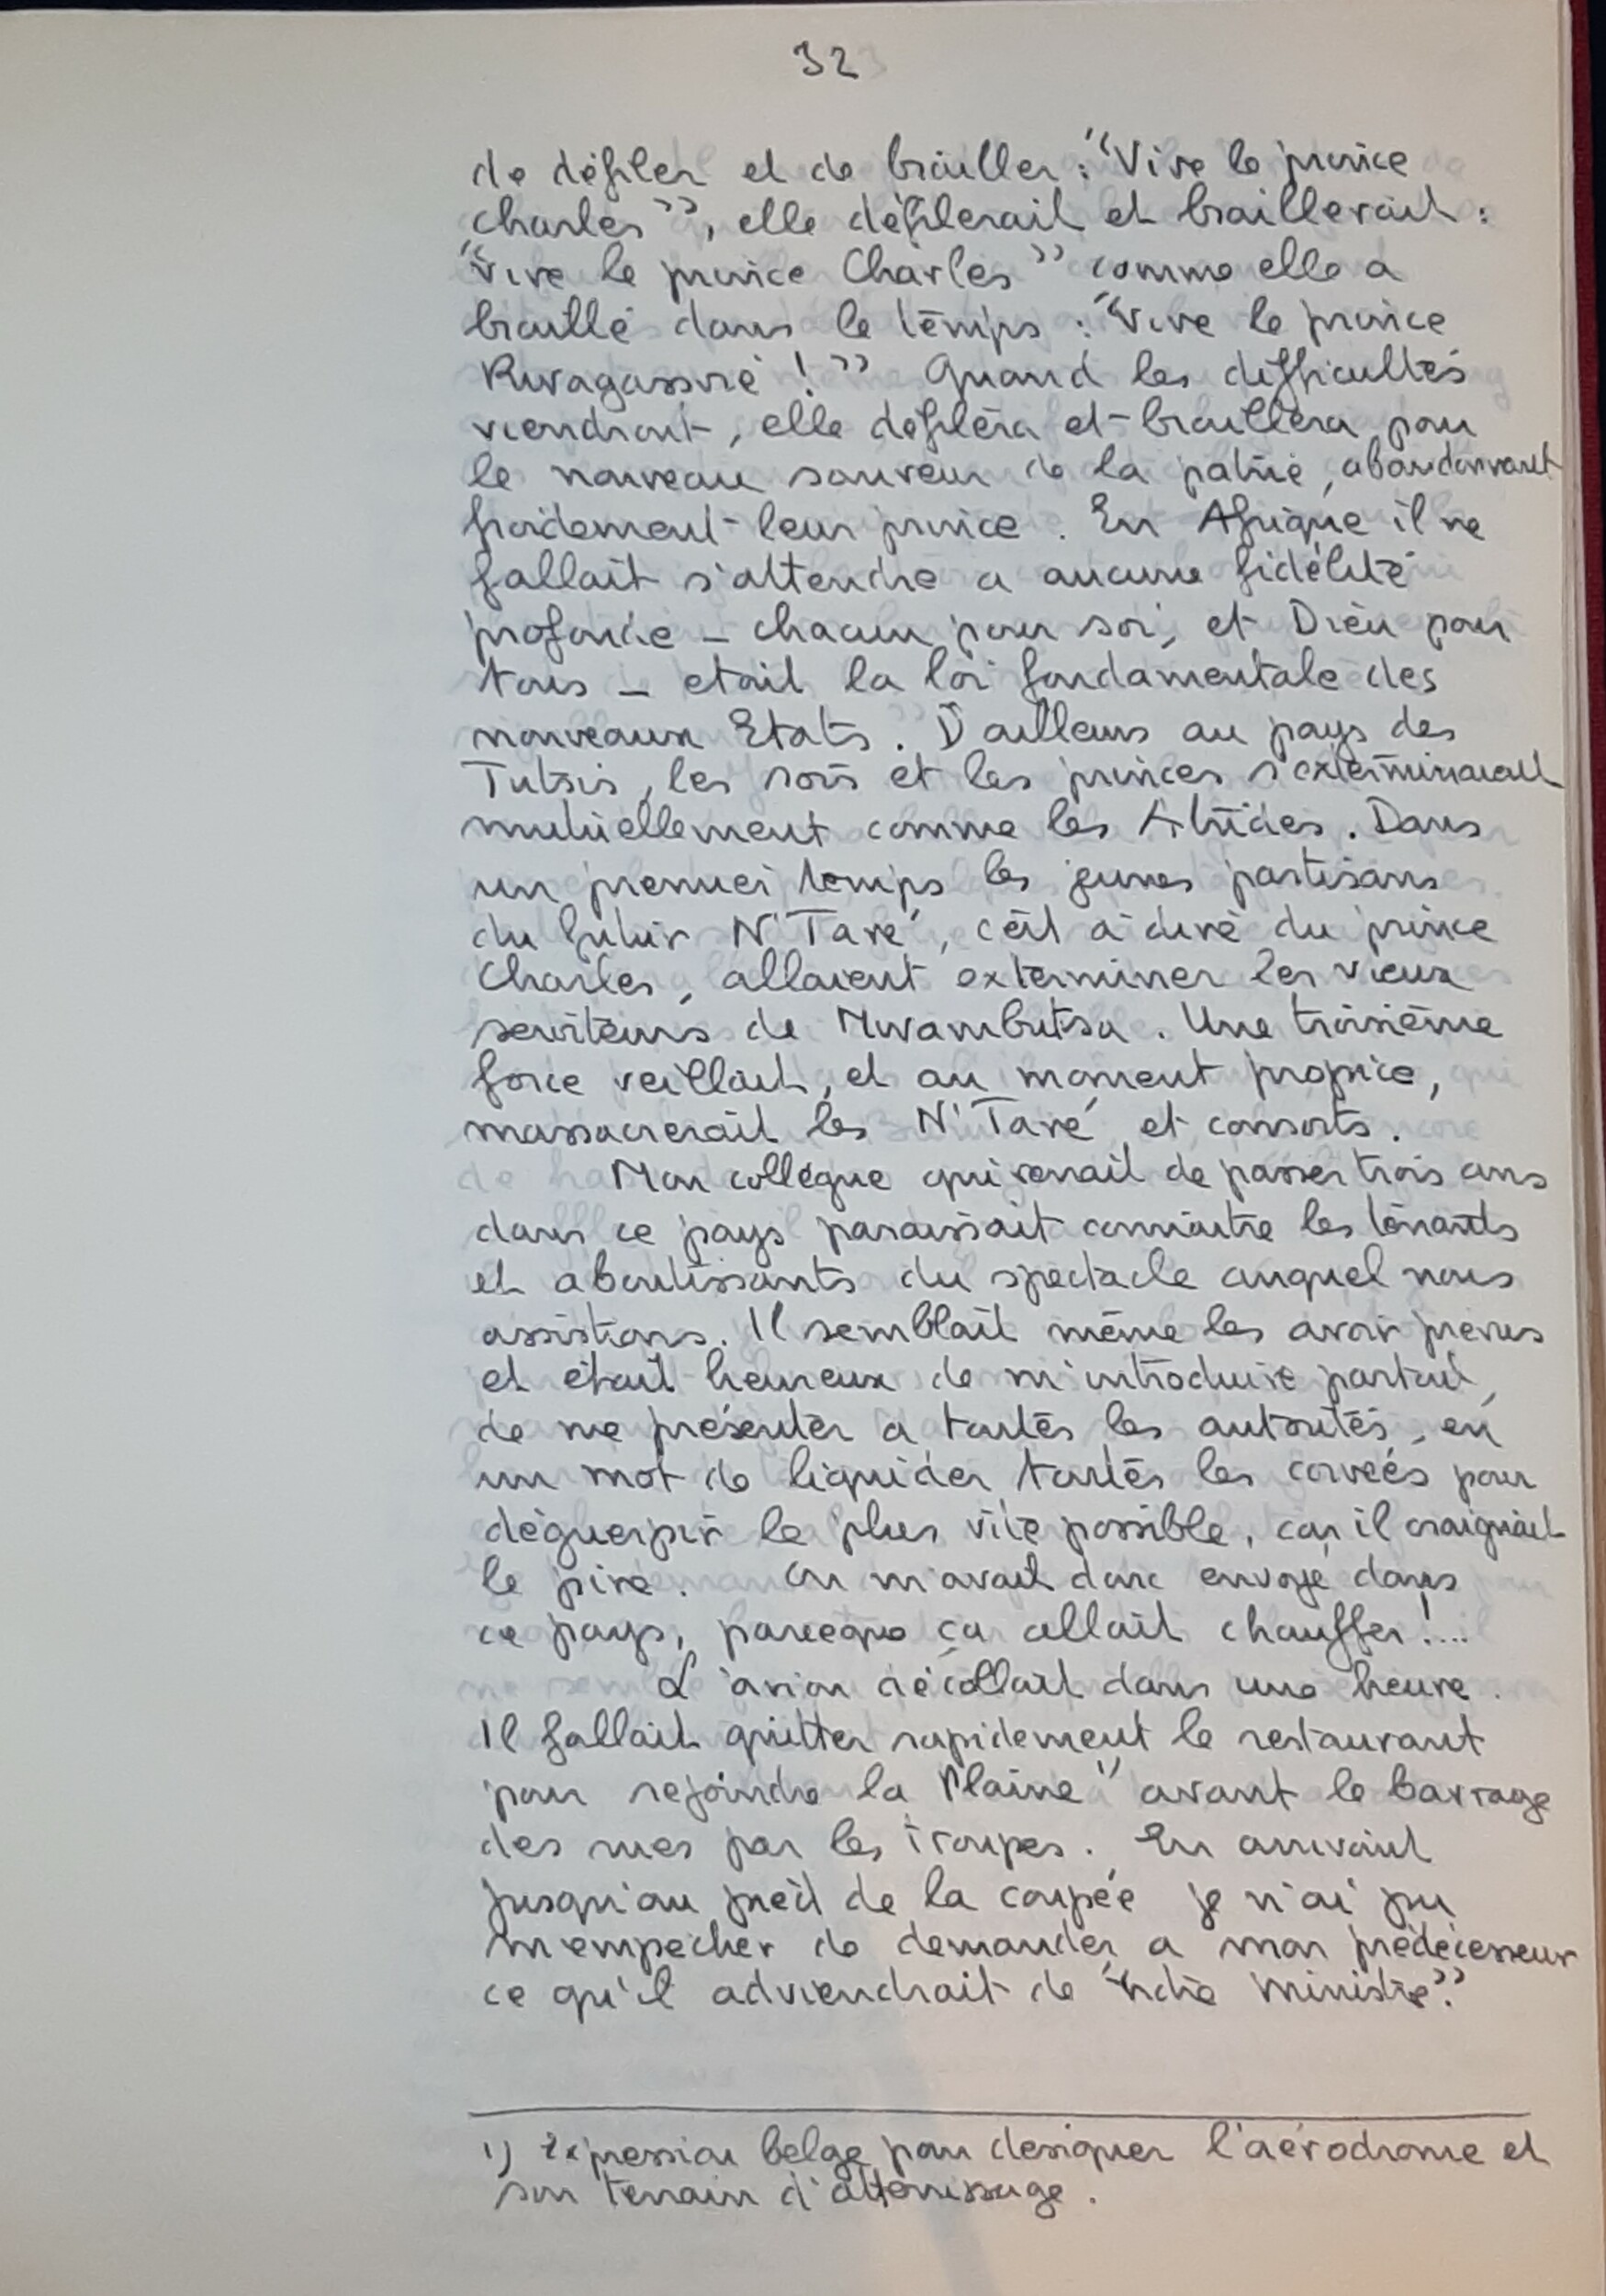 32
de défiler et de brailler : "Vive le prince
Charles", elle défilerait et braillerait :
"Vive le prince Charles" comme elle a
braillé dans le temps : "Vive le prince
Rwagassoré !" Quand les difficultés
viendront, elle défilera et braillera pour
le nouveau sauveur de la patrie, abandonnant
froidement leur prince. En Afrique il ne
fallait s'attendre a aucune fidélité
profonde – chacun pour soi, et Dieu pour
tous – etait la loi fondamentale des
nouveaux Etats. D'ailleurs au pays des
Tutsis, les rois et les princes s'exterminaient
mutuellement comme les Atrides. Dans
un premier temps les jeunes partisans
du futur N'Taré, c'ést à dire du prince
Charles, allaient exterminer les vieux
serviteurs de Mwambutsa. Une troisième
force veillait, et au moment propice,
massacrerait les N'Taré et consorts.
Mon collègue qui venait de passer trois ans
dans ce pays paraissait connaitre les tenants
et aboutissants du spectacle auquel nous
assistions. Il semblait même les avoir prévus
et était heureux de m'introduire partout,
de me présenter a toutes les autorités, en
un mot de liquider toutes les corvées pour
déguerpir le plus vite possible, car il craignait
le pire. On m'avait donc envoyé dans
ce pays, parceque ça allait chauffer !....
L'avion décollait dans une heure.
Il fallait quitter rapidement le restaurant
pour rejoindre la Plaine" avant le barrage
des rues par les troupes. En arrivant
jusqu'au pied de la coupée je n'ai pu
m'empecher de demander a mon prédécesseur
ce qu'il adviendrait de "notre ministre."
1) Expression belge pour designer l'aérodrome et
son terrain d'atterrissage.